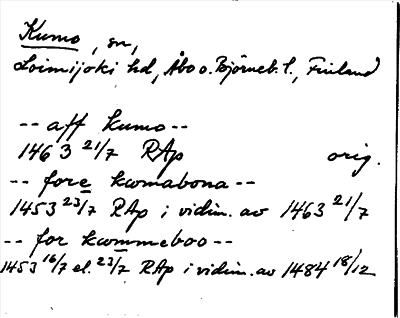 Kumo, sn,
Loimijoki hd, Åbo o. Björneb. l., Finland
-- aff kumo --
1463 21/7 RAp orig.
-- fore kwmabona --
1453 23/7 RAp i vidim. av 1463 21/7
-- for kwmmeboo --
1453 16/7 el. 23/7 RAp i vidim. av 1484 18/12